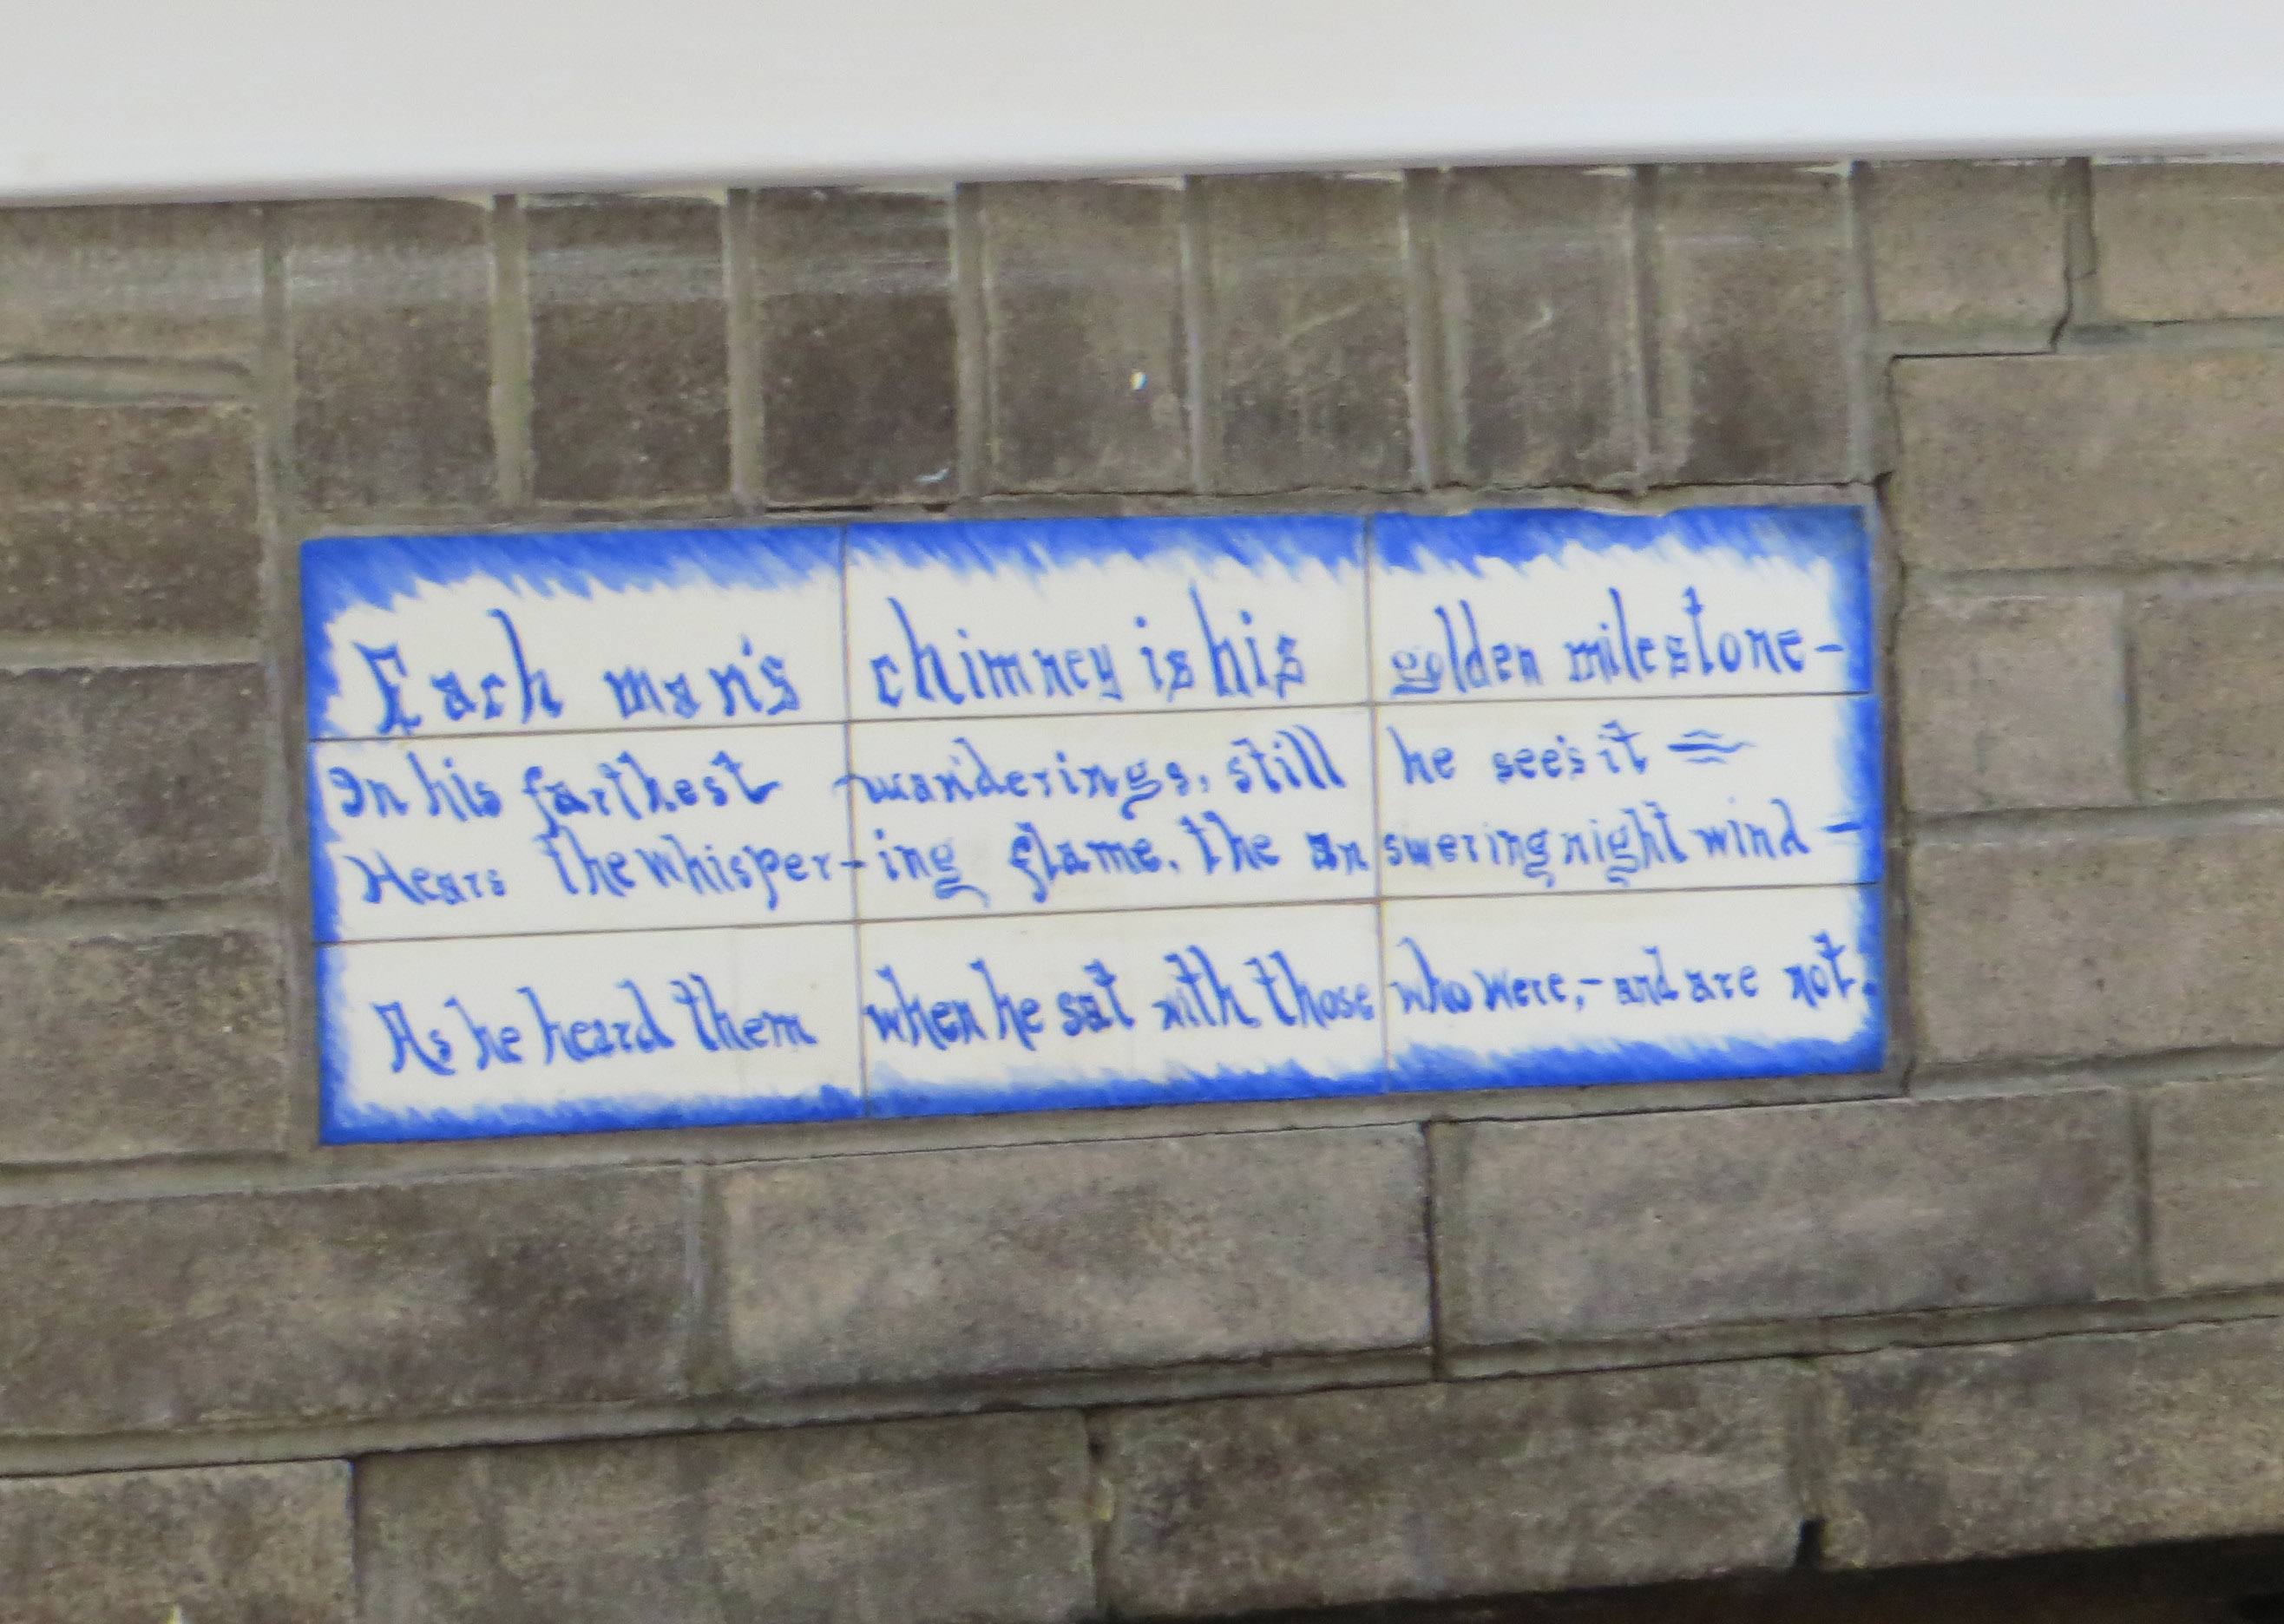 Each man's chimney is his golden milestone-
In his farthest wanderings, still he see's it
Hears the whisper-ing flame, the answering night wind -
As he heard them when he sat with those who were,- and are not.